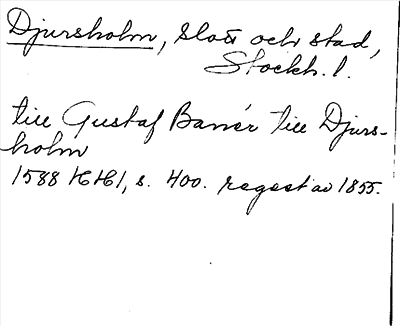 Djursholm, slott och stad,
Stockh. l.
till Gustaf Banér till Djurs-
holm
1588 HH1, s. 400. regest av 1855.